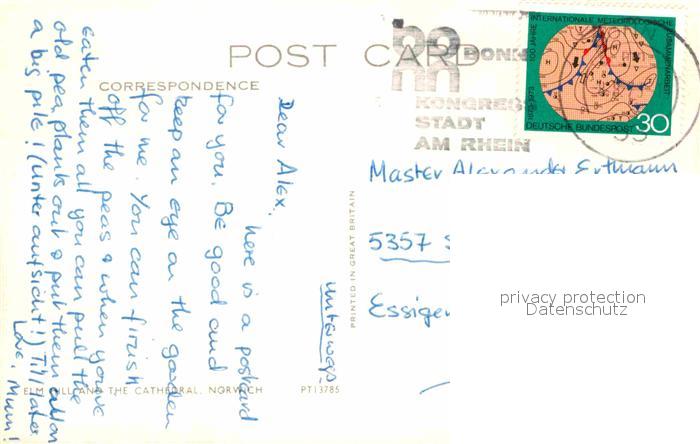 POST CARD
CORRESPONDENCE
unterwegs
Dear Alex,
here is a postcard
for you. Be good and
keep an eye on the garden
for me. You can finish
off the peas & when you've
eaten them all you can pull the
old pea plants out & put them all on
a big pile! (unter aufsicht!) Till later
Love, Mum!
ELM HILL AND THE CATHEDRAL, NORWICH PT13785
PRINTED IN GREAT BRITAIN
bonn
BONN
KONGRESS
STADT
AM RHEIN
100 JAHRE INTERNATIONALE METEOROLOGISCHE ZUSAMMENARBEIT
1873-1973
DEUTSCHE BUNDESPOST 30
53
Master Alexander Ertmann
5357
Essigen
privacy protection
Datenschutz